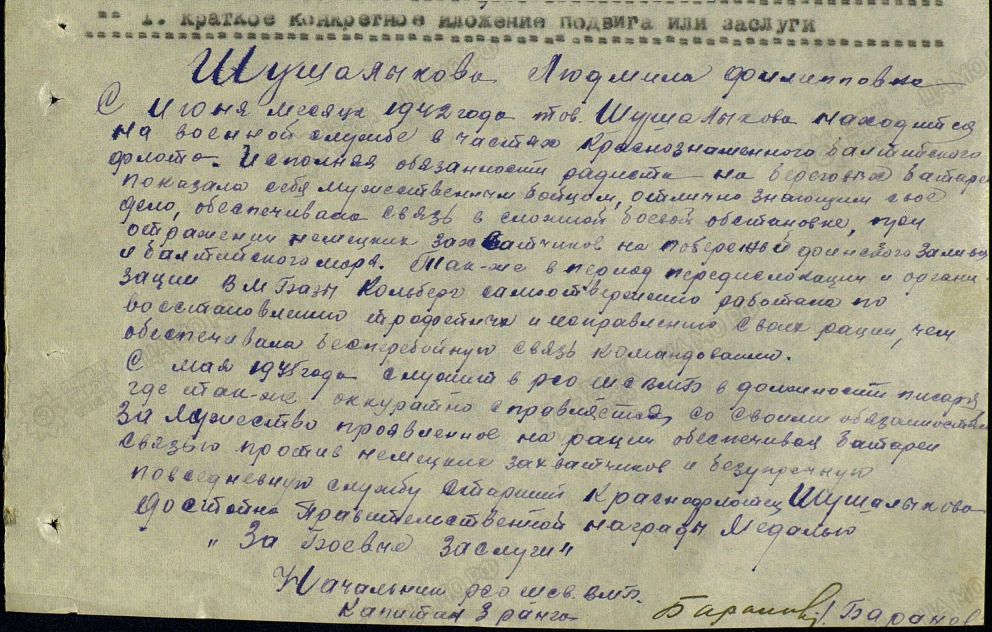 1. Краткое конкретное иложение подвига или заслуги
Шушалыкова Людмила Филипповна
С Июня месяца 1942 года тов. Шушалыкова находится
на военной службе в частях Краснознаменного Балтийского
флота. Исполняя обязанности радиста на береговые батареи
показала себя мужественным бойцом, отлично знающим свое
дело, обеспечивала связь в сложной боевой обстановке, при
отражении немецких захватчиков на побережьи Финского залива
и Балтийского моря. Так-же в период передислокации и органи
зации В М Базы Кольберг самоотверженно работала по
восстановлению трофейных и исправлению своих рации, чем
обеспечивала бесперебойную связь командованию.
С мая 1945 года служит в рсо шсвмб в должности писаря,
где так-же аккуратно справляется, со своими обязанностями
За мужество проявленное на рации обеспечивая батареи
связью против немецких захватчиков и безупречную
повседневную службу Старший Краснофлотец Шушалыкова
достойна Правительственной награды Медалью
"За Боевые заслуги"
Начальник рсо шсв. вмб.
Капитан 3 ранга Баранов /Баранов